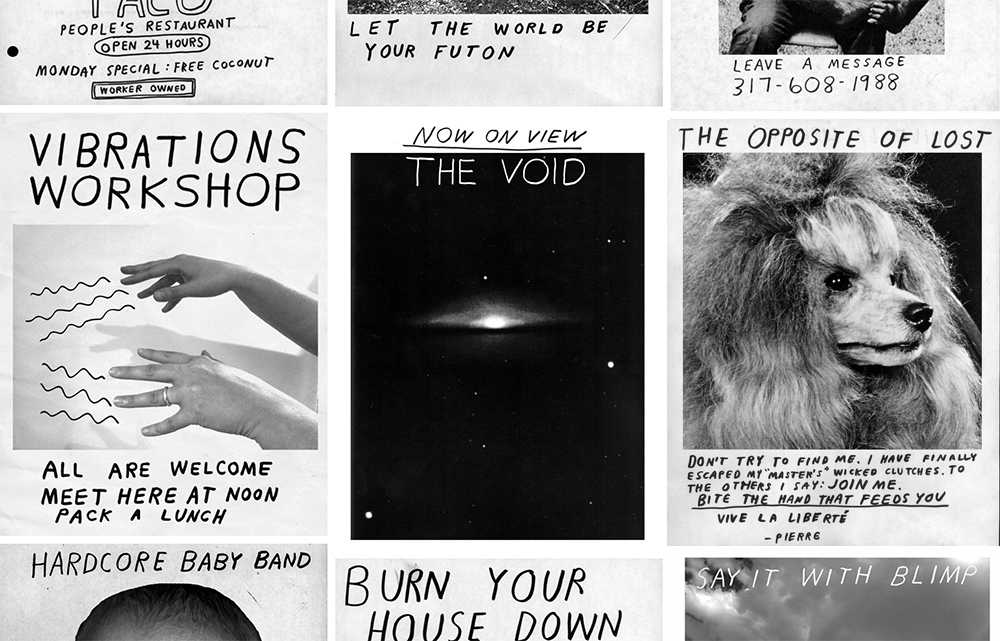 TACO
PEOPLE'S RESTAURANT
OPEN 24 HOURS
MONDAY SPECIAL: FREE COCONUT
WORKER OWNED
LET THE WORLD BE
YOUR FUTON
LEAVE A MESSAGE
317-608-1988
VIBRATIONS
WORKSHOP
ALL ARE WELCOME
MEET HERE AT NOON
PACK A LUNCH
NOW ON VIEW
THE VOID
THE OPPOSITE OF LOST
DON'T TRY TO FIND ME. I HAVE FINALLY
ESCAPED MY "MASTER'S" WICKED CLUTCHES. TO
THE OTHERS I SAY: JOIN ME.
BITE THE HAND THAT FEEDS YOU
VIVE LA LIBERTÉ
-PIERRE
HARDCORE BABY BAND
BURN YOUR
HOUSE DOWN
SAY IT WITH BLIMP